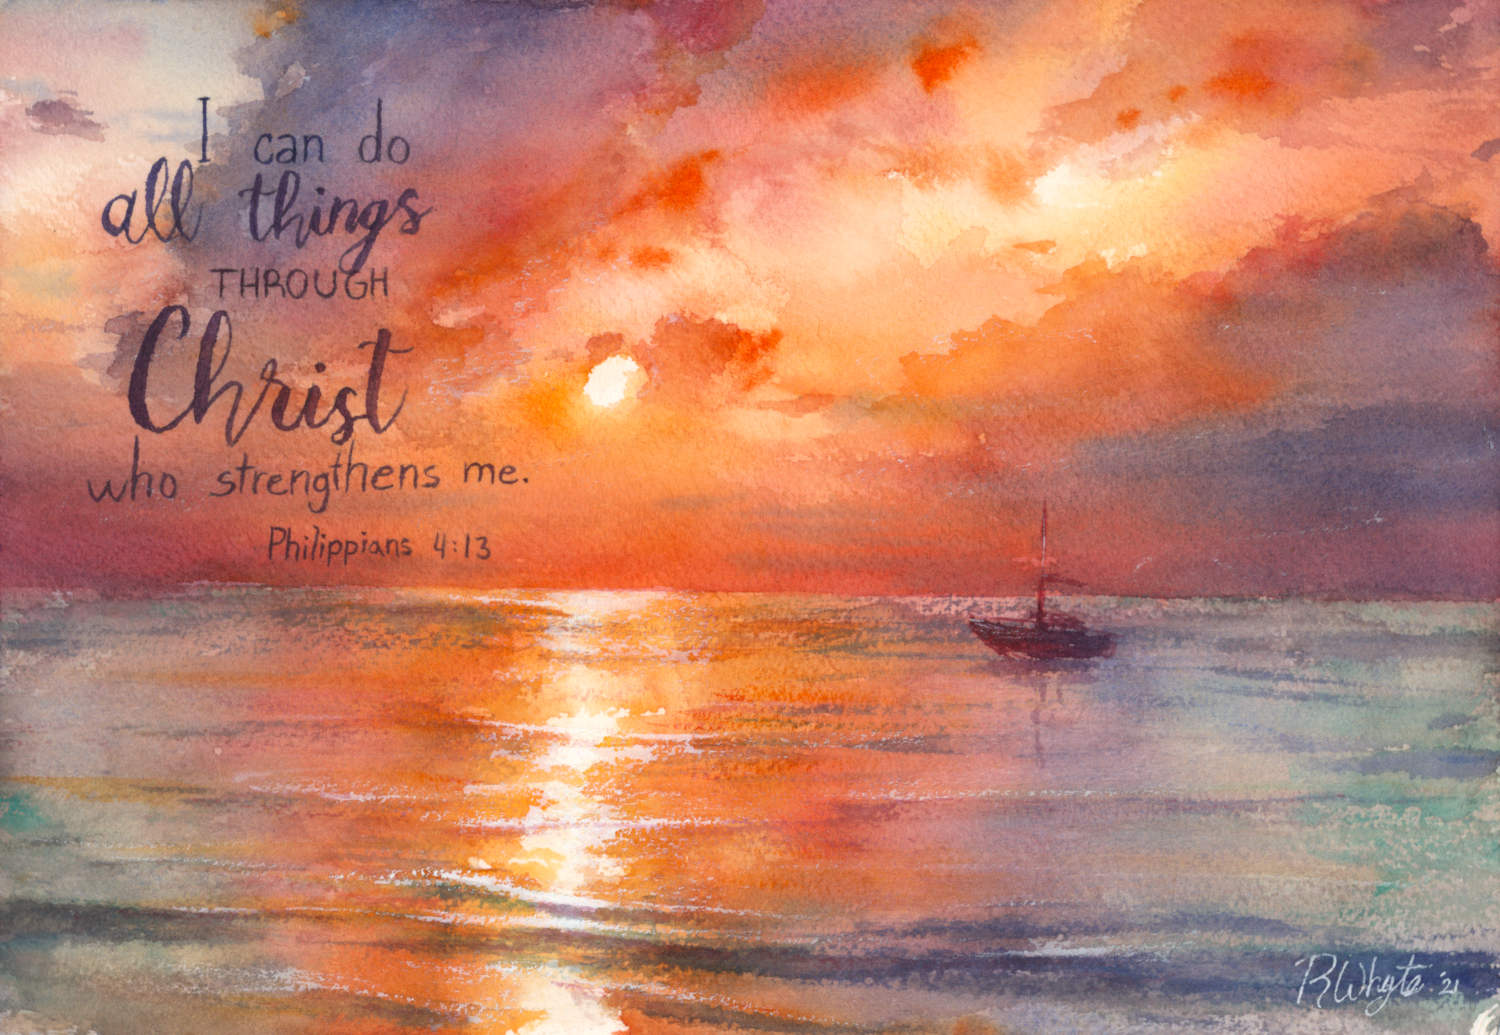 I can do
all things
THROUGH
Christ
who strengthens me.
Philippians 4:13
R Whyte '21